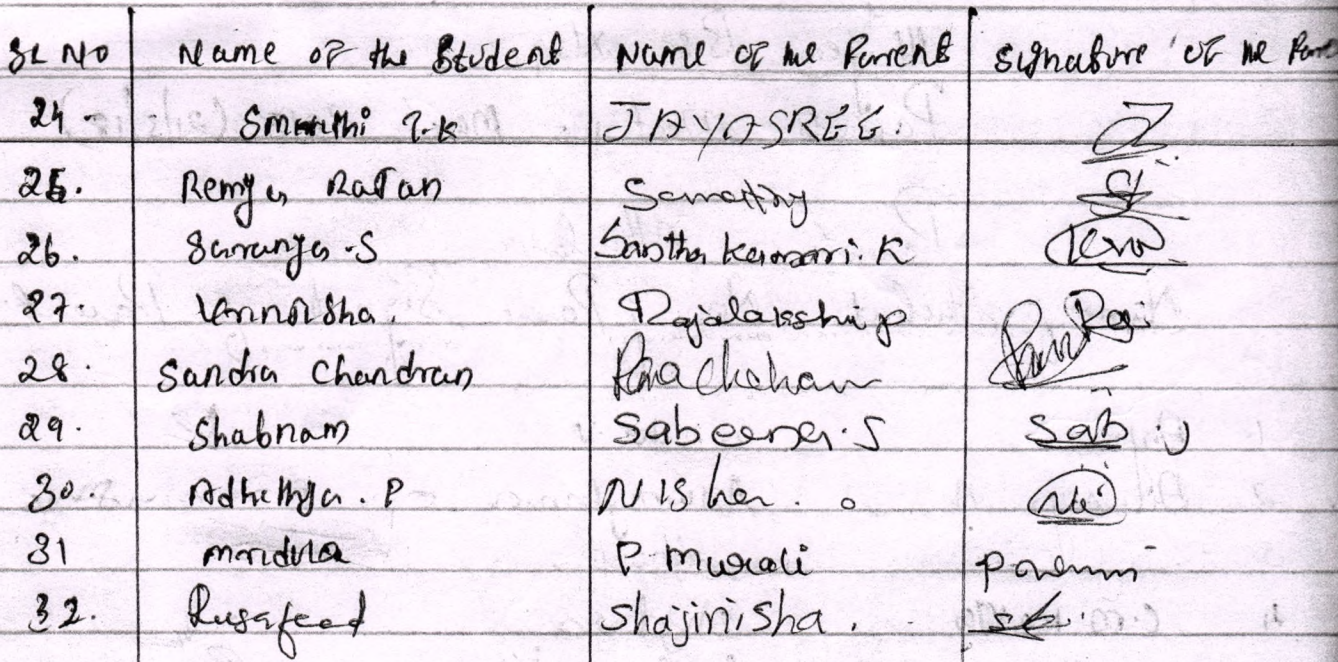 SL NO Name of the Student Name of the Parent Signature of the Pare
24 - Smruthi T.K JAYASREE.
25. Remya Ratan Samathy
26. Saranya.S Santha Kumari.K
27. Rajalakshi P Raji
28. Sandra Chandran
29. Shabnam Sabeena.S Sab
30. Adhethya. P Nisha.
31 mridula P Murali
32. Shajinisha.